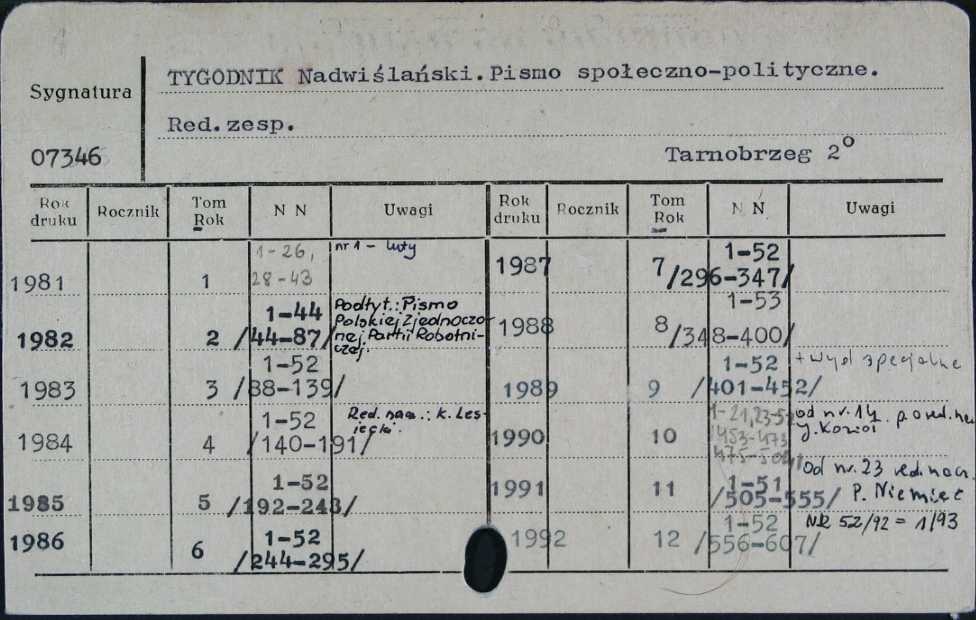 TYGODNIK Nadwiślański. Pismo społeczno-polityczne.
Sygnatura
Red. zesp.
07346
Tarnobrzeg 2°
Rok druku Rocznik Tom Rok N N Uwagi Rok druku Rocznik Tom Rok N N Uwagi
1981 1 1-26, 28-43 nr 1 - luty
1982 2 1-44 /44-87/ Podtyt.: Pismo
Polskiej Zjednoczo-
nej Partii Robotni-
czej.
1983 3 1-52 /88-139/
1984 4 1-52 /140-191/ Red. nacz.: K. Les-
iecki.
1985 5 1-52 /192-243/
1986 6 1-52 /244-295/
1987 7 1-52 /296-347/
1988 8 1-53 /348-400/
1989 9 1-52 /401-452/ + wyd specjalne
1990 10 1-21, 23-52 /453-473 475-504/ od nr. 14
J. Kozioł
1991 11 1-51 /505-555/ Od nr. 23 red. nacz.
P. Niemiec
1992 12 1-52 /556-607/ NR 52/92 = 1/93